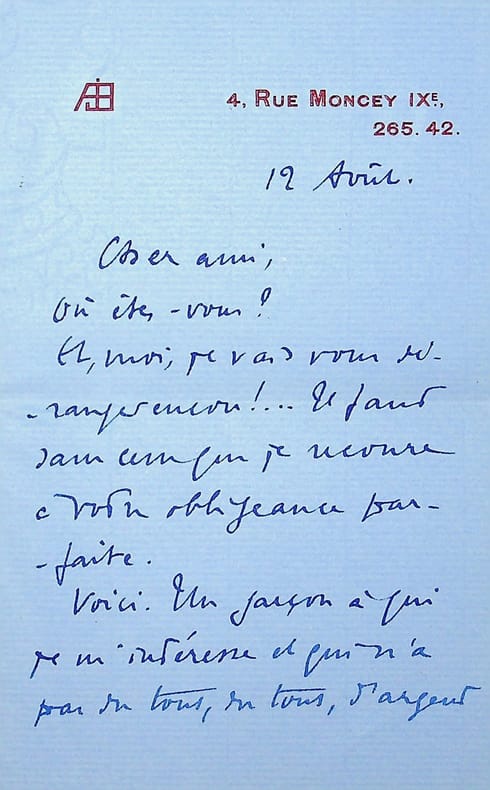 AJB
4, RUE MONCEY IXE,
265. 42.
12 Août.
Cher ami,
Où êtes-vous ?
Et, moi, je vais vous dé-
-ranger encore !... Il faut
sans cesse que je recoure
à votre obligeance par-
-faite.
Voici. Un garçon à qui
je m'intéresse et qui n'a
pas du tout, du tout, d'argent